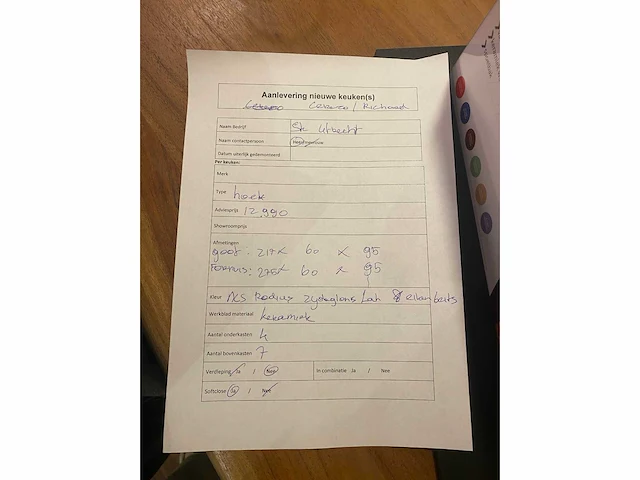 Aanlevering nieuwe keuken(s)
Cerezo / Richard
Naam Bedrijf SK Utrecht
Naam contactpersoon
Datum uiterlijk gedemonteerd
Per keuken:
Merk
Type hoek
Adviesprijs 12.990
Showroomprijs
Afmetingen
goot: 217 x 60 x 95
Fornuis: 275 x 60 x 95
Kleur Radius zijdeglans Lak & eikenbeits
Werkblad materiaal keramiek
Aantal onderkasten 4
Aantal bovenkasten 7
Verdieping Ja / Nee In combinatie Ja / Nee
Softclose Ja / Nee